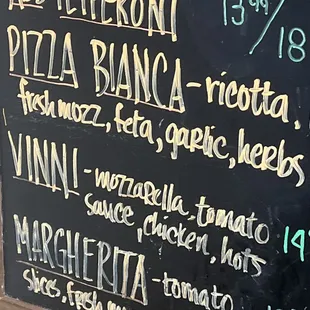 ADD PEPPERONI 13⁹⁹/18
PIZZA BIANCA - ricotta,
fresh mozz, feta, garlic, herbs
VINNI - mozzarella, tomato
sauce, chicken, hots 14
MARGHERITA - tomato
slices, fresh